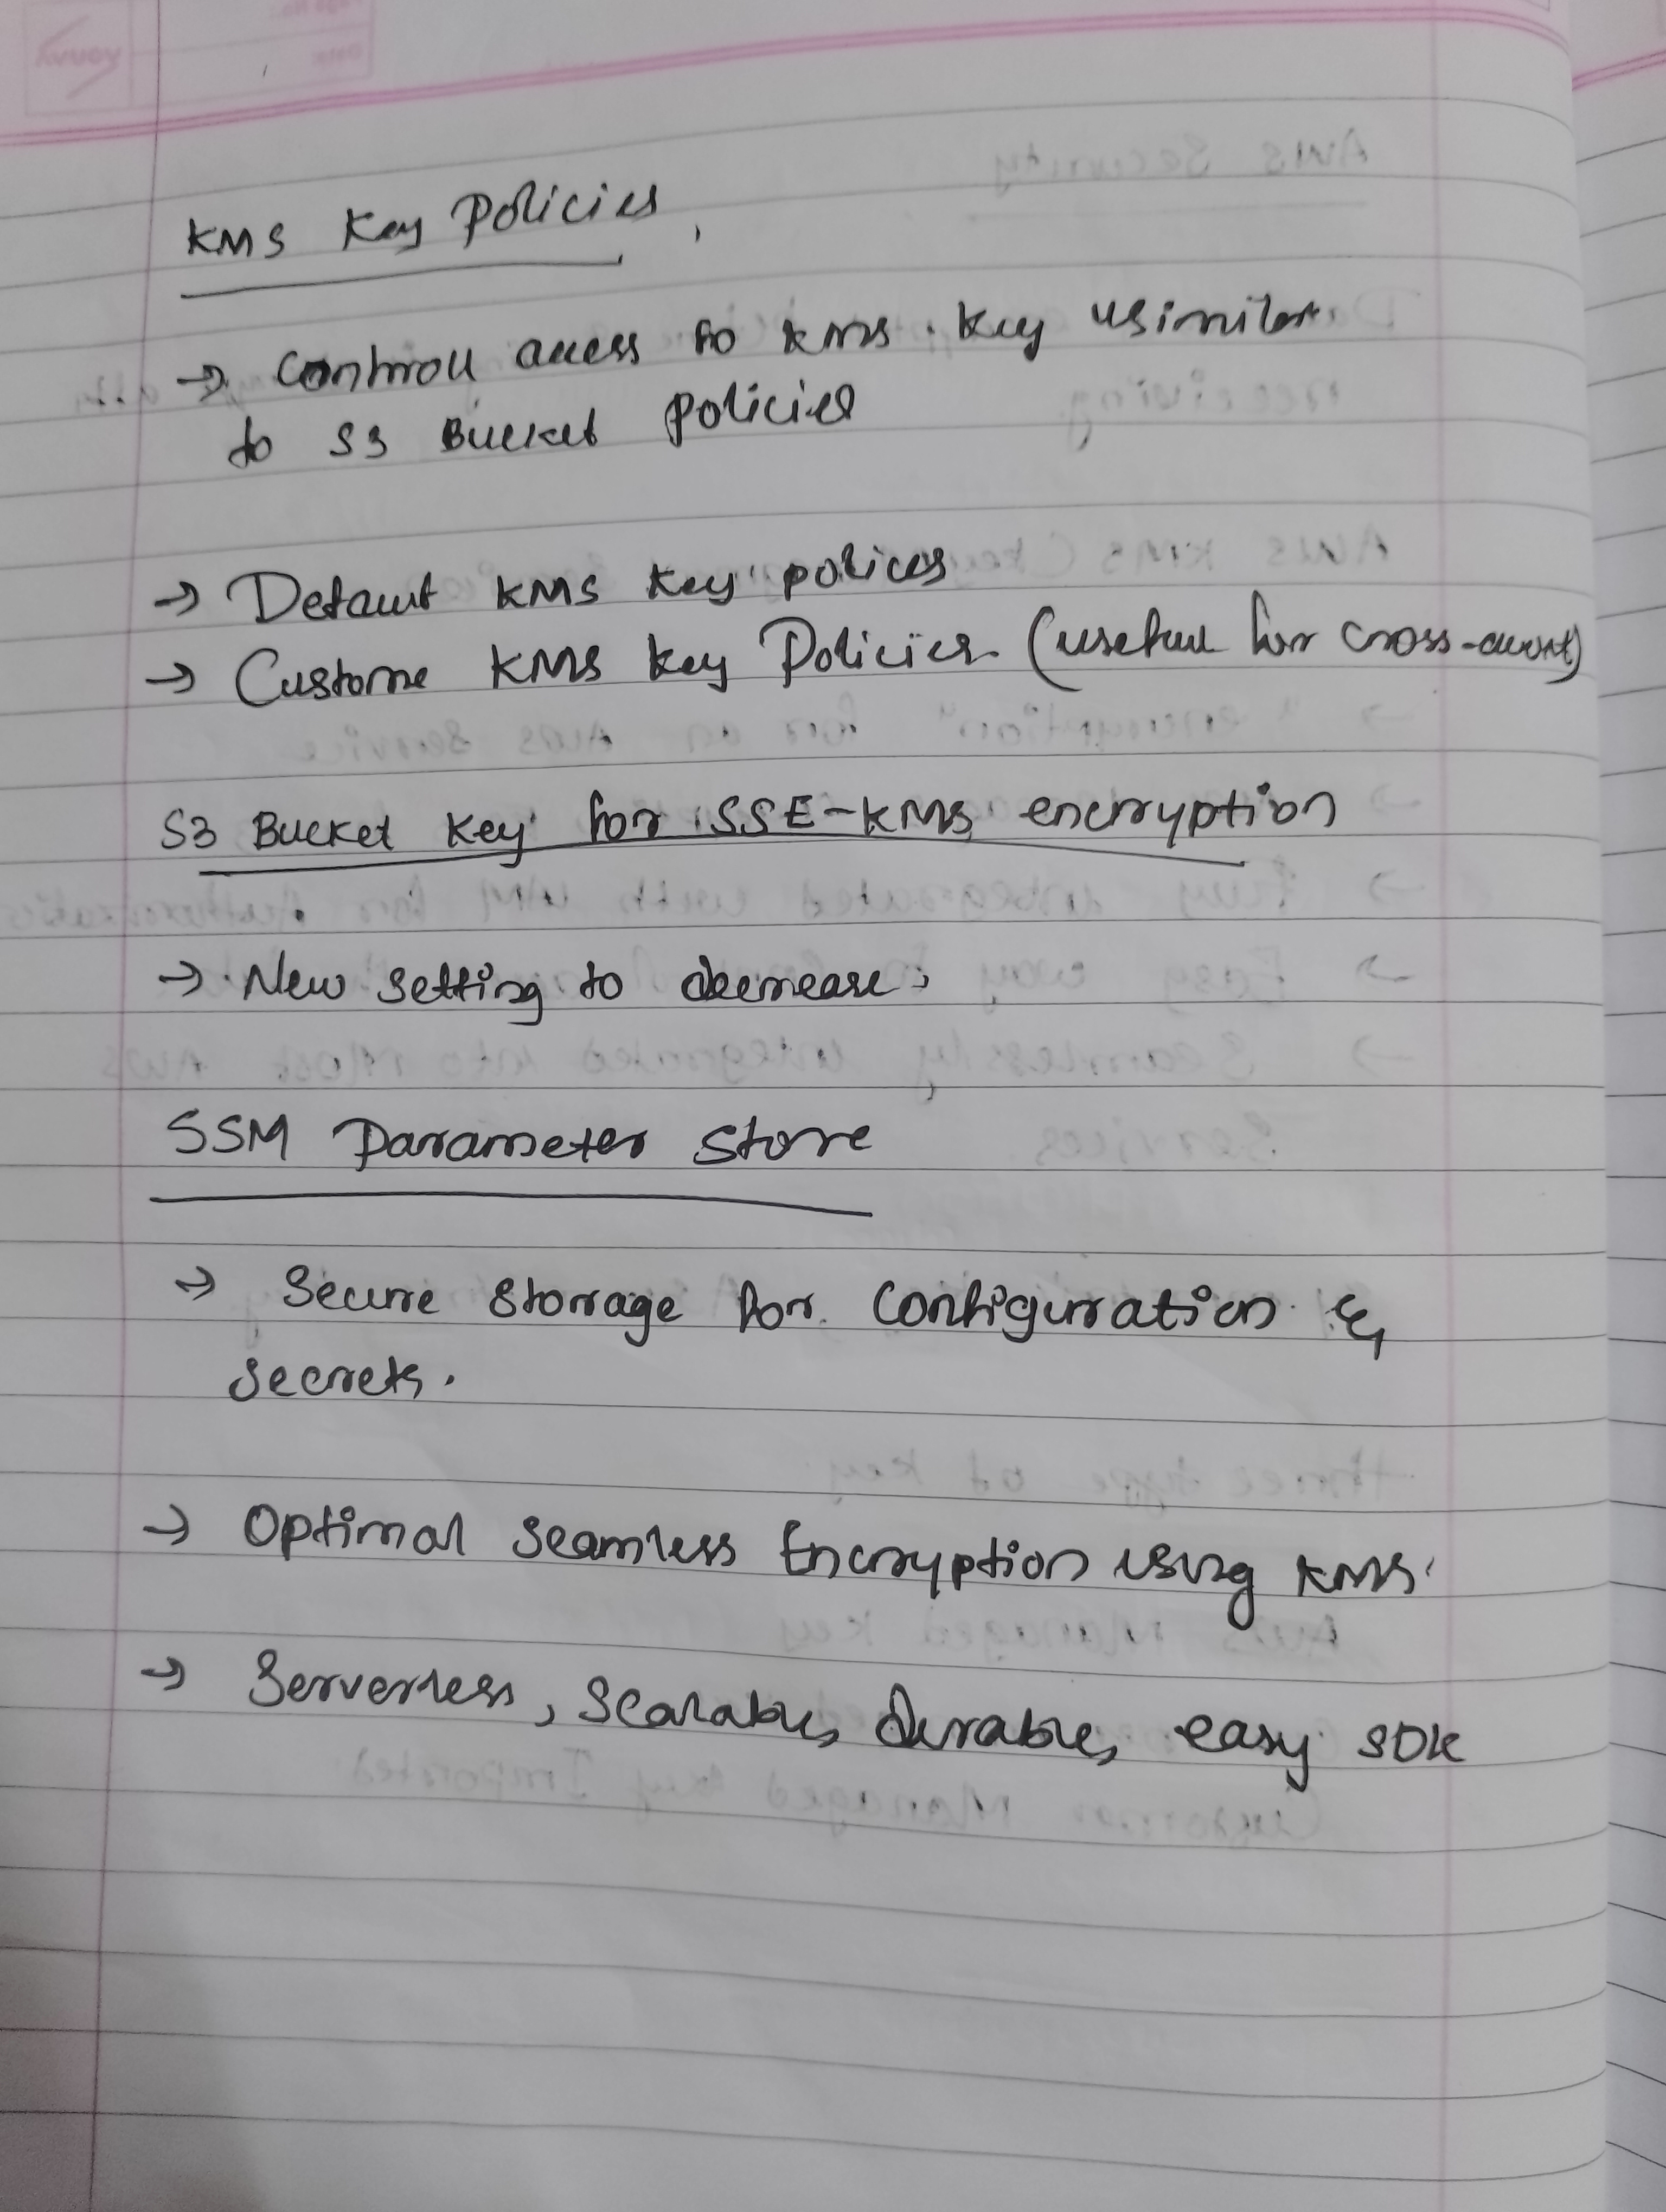 KMS Key Policies
→ Controll access to KMS Key usimilar
to S3 Bucket policies
→ Default KMS Key polices
→ Custome KMS key Policies (useful for cross-account)
S3 Bucket Key for SSE-KMS encryption
→ New setting to decrease
SSM Parameter Store
→ Secure Storage for Configuration &
Secrets.
→ Optimal Seamless Encryption using KMS
→ Serverless, Scalable, durable, easy SDK